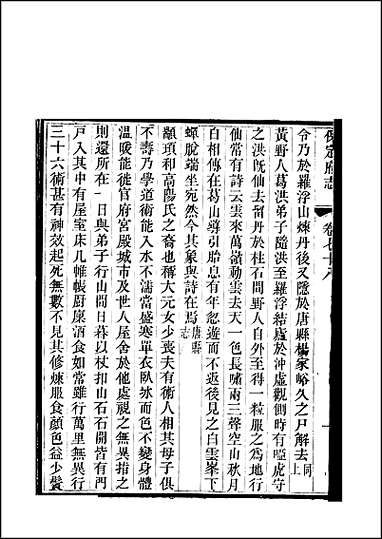 保定府志 卷七十八
令乃於羅浮山煉丹後又隱於唐縣楊家峪久之尸解去同上
黃野人葛洪弟子隨洪至羅浮結廬於沖虛觀側時有啞虎守
之洪旣仙去留丹於柱石間野人自外至得一粒服之為地行
仙常有詩云雲來萬嶺動雲去天一色長嘯兩三聲空山秋月
白相傳在葛山導引胎息有年忽遊而不返後見之白雲峯下
蟬脫端坐宛然今其象與詩在焉唐縣志
顓頊和高陽氏之裔也稱大元女少喪夫有術人相其母子俱
不壽乃學道術能入水不濡當盛寒單衣臥冰而色不變身體
溫暖能徙官府宮殿城市及世人屋舍於他處視之無異指之
則還所在一日與弟子行山間日暮以杖扣山石石開皆有門
戸入其中有屋室床几帷帳厨廪酒食如常雖行萬里無異行
三十六術甚有神效起死無數不見其修煉服食顏色益少鬢